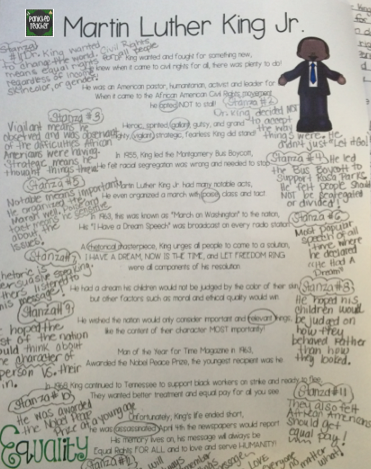 PANICKED TEACHER
Martin Luther King Jr.
King wanted and fought for something new,
knew when it came to civil rights for all, there was plenty to do!
He was an American pastor, humanitarian, activist and leader for
When it came to the African American Civil Rights movement,
he opted NOT to stall!
Heroic, spirited, valiant, gutsy, and grand
valiant strategic, fearless King did stand!
In 1955, King led the Montgomery Bus Boycott,
He felt racial segregation was wrong and needed to stop
Martin Luther King Jr. had many notable acts,
He even organized a march with poise, class and tact.
In 1963, the was known as "March on Washington" to the nation,
His "I Have a Dream Speech" was broadcast on every radio station
A rhetorical masterpiece, King urges all people to come to a solution,
I HAVE A DREAM, NOW IS THE TIME, and LET FREEDOM RING
were all components of his resolution.
He had a dream his children would not be judged by the color of their skin
but other factors such as moral and ethical quality would win.
He wished the nation would only consider important and relevant things,
like the content of their character MOST importantly!
Man of the Year for Time Magazine in 1963,
Awarded the Nobel Peace Prize, the youngest recipient was he.
In 1968 King continued to Tennessee to support black workers on strike and ready to flee
They wanted better treatment and equal pay for all you see.
Unfortunately, King's life ended short,
He was assassinated April 4th the newspapers would report
His memory lives on, his message will always be
EQUALITY for ALL and to love and serve HUMANITY!
Stanza #1 Dr. King wanted
to change the world. Civil Rights
means equal rights for all people
regardless of income,
skin color, or gender.
Stanza #2
Dr. King decided not
to accept the way
things were. He
didn't just let it go!
Stanza #3
Vigilant means he
observed and was observant
of the difficulties African
Americans were facing.
Strategic means he
thought things thru.
Stanza #4 He led
the Bus Boycott to
support Rosa Parks.
He felt people should
not be segregated
or divided!
Stanza #5
Notable means important.
He organized the
March
about the
issues.
Stanza #6
Most popular
speech of all
time where
he declared
"He Had A
Dream"
Stanza #7
persuasive speaking.
listened to
his message!
Stanza #8
He hoped his
children would
be judged on
how they
behaved rather
than how
they looked.
Stanza #9
He hoped the
rest of the nation
would think about
the character of
person vs. their
skin.
Stanza #10
He was awarded
the Nobel Peace
Prize at a young age
Stanza #11
They also felt
African Americans
should get
equal pay!
Equality
Stanza #12